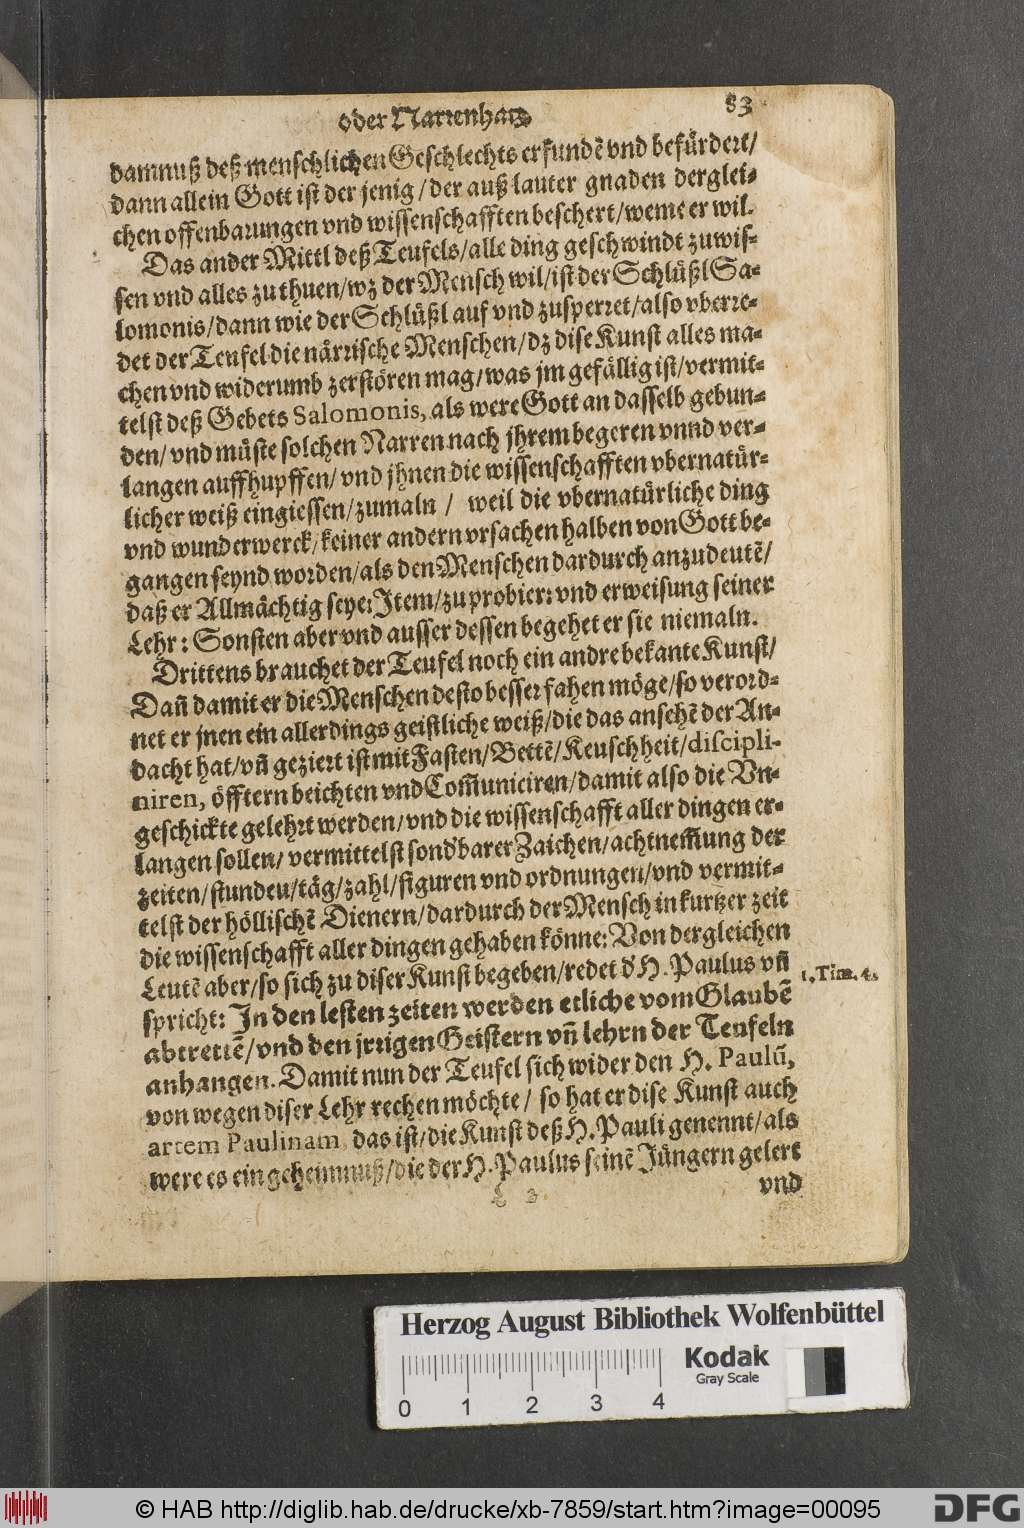 oder Narrenhatz
83
damnuß deß menschlichen Geschlechts erkundē vnd befürdert/
dann allein Gott ist der jenig/der auß lauter gnaden derglei-
chen offenbarungen vnd wissenschafften beschert/weme er wil.
Das ander Mittl deß Teufels/alle ding geschwindt zuwis-
sen vnd alles zuthuen/wz der Mensch wil/ist der Schlüßl Sa-
lomonis/dann wie der Schlüßl auf vnd zusperret/also vberre-
det der Teufel die närrische Menschen/dz dise Kunst alles ma-
chen vnd widerumb zerstören mag/was jm gefällig ist/vermit-
telst deß Gebets Salomonis, als were Gott an dasselb gebun-
den/vnd müste solchen Narren nach jhrem begeren vnnd ver-
langen auffhupffen/vnd jhnen die wissenschafften vbernatür-
licher weiß eingiessen/zumaln / weil die vbernatürliche ding
vnd wunderwerck/keiner andern vrsachen halben von Gott be-
gangen seynd worden/als den Menschen dardurch anzudeutē/
daß er Allmächtig seye: Item/zu probier: vnd erweisung seiner
Lehr: Sonsten aber vnd ausser dessen begehet er sie niemaln.
Drittens brauchet der Teufel noch ein andre bekante Kunst/
Dañ damit er die Menschen desto besser fahen möge/so verord-
net er jnen ein allerdings geistliche weiß/die das ansehē der An-
dacht hat/vñ geziert ist mit Fasten/Bettē/Keuschheit/discipli-
niren, öfftern beichten vnd Com̃uniciren/damit also die Vn-
geschickte gelehrt werden/vnd die wissenschafft aller dingen er-
langen sollen/vermittelst sond'barer Zaichen/achtnem̃ung der
zeiten/stunden/täg/zahl/figuren vnd ordnungen/vnd vermit-
telst der höllischē Dienern/dardurch der Mensch in kurtzer zeit
die wissenschafft aller dingen gehaben könne: Von dergleichen
Leutē aber/so sich zu diser Kunst begeben/redet d' H. Paulus vñ
1. Tim. 4.
spricht: In den lesten zeiten werden etliche vom Glaubē
abtrettē/vnd den jrrigen Geistern vñ lehrn der Teufeln
anhangen. Damit nun der Teufel sich wider den H. Paulū,
von wegen diser Lehr rechen möchte/ so hat er dise Kunst auch
artem Paulinam, das ist/die Kunst deß H. Pauli genennt/als
were es ein geheimnuß/die der H. Paulus seinē Jüngern gelert
L 3
vnd
Herzog August Bibliothek Wolfenbüttel
Kodak
Gray Scale
0 1 2 3 4
© HAB http://diglib.hab.de/drucke/xb-7859/start.htm?image=00095
DFG